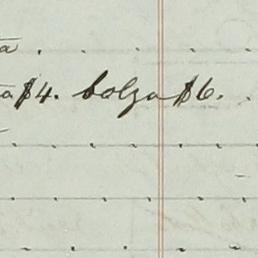 a
a $4. bolza $6.